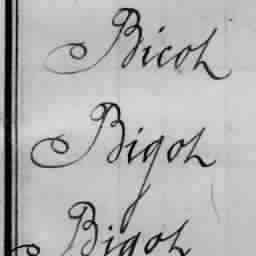 Bicot
Bigot
Bigot